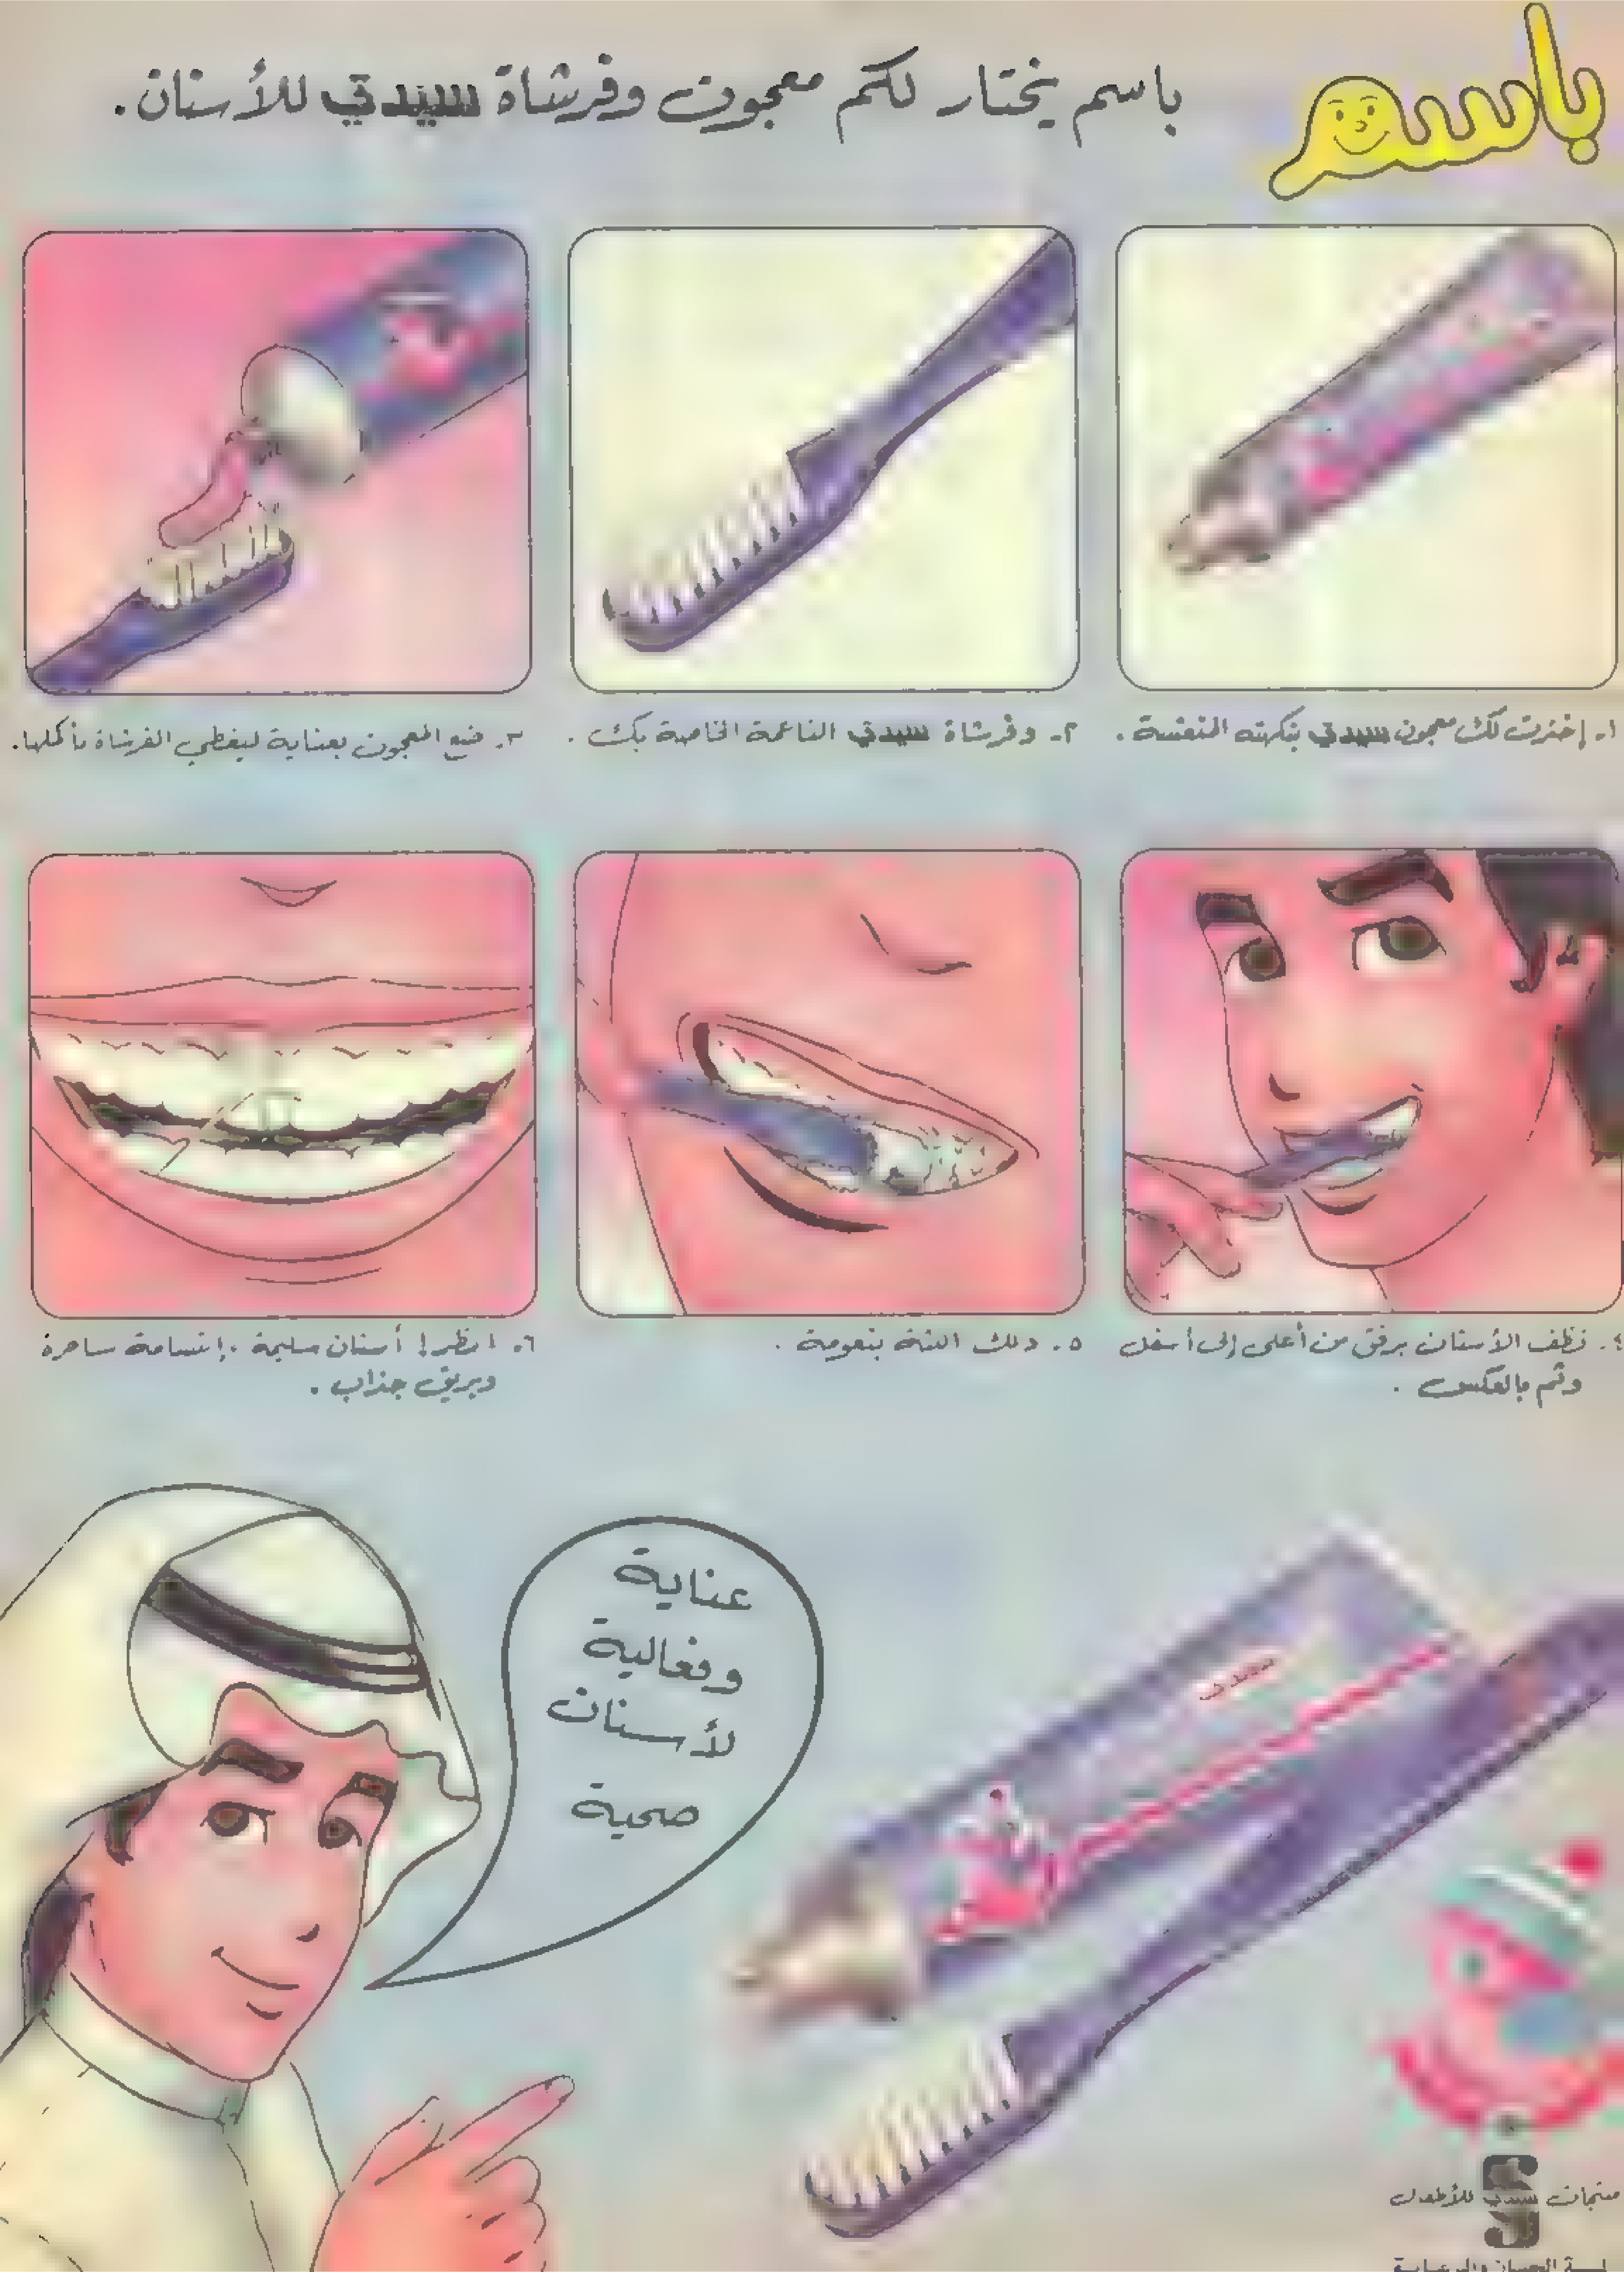 باسم
باسم يختار لكم معجون وفرشاة سيدتي للأسنان.
١. إخترت لك معجون سيدتي بنكهته المنعشة.
٢. وفرشاة سيدتي الناعمة الخاصة بك.
٣. ضع المعجون بعناية ليغطي الفرشاة بأكملها.
٤. نظف الأسنان برفق من أعلى إلى أسفل
وثم بالعكس.
٥. دلك اللثة بنعومة.
٦. انظر! أسنان سليمة، إبتسامة ساحرة
وبريق جذاب.
عناية
وفعالية
لأسنان
صحية
منتجات للأطفال